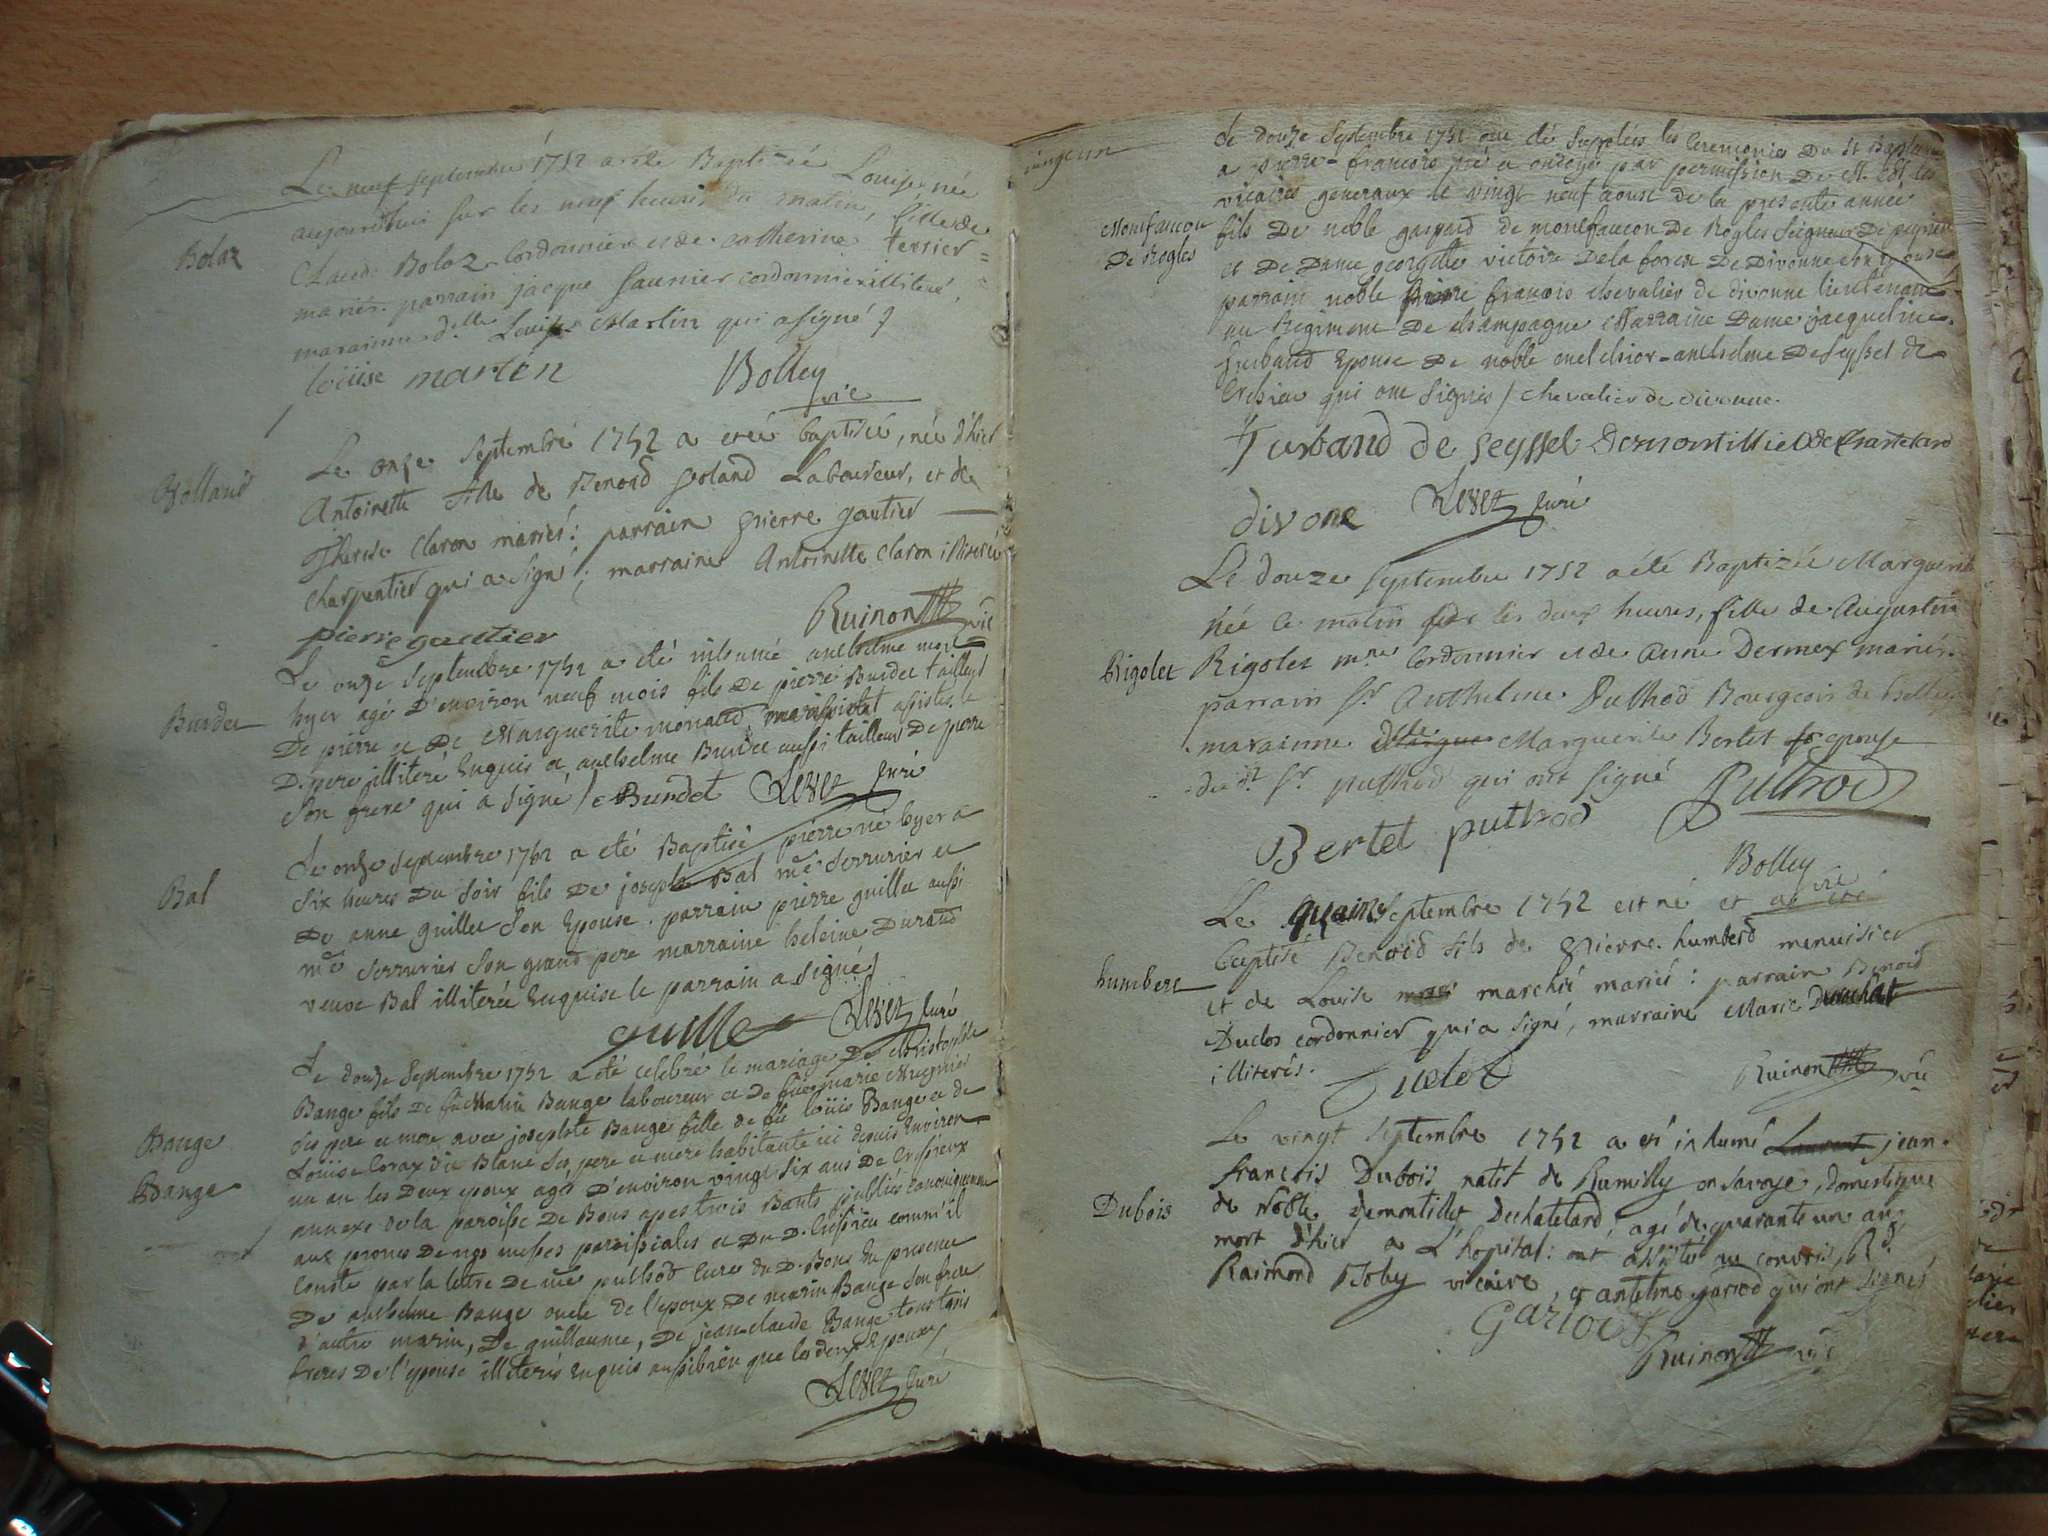 Le neuf septembre 1752 a eté Baptizée Louise née
aujourdhui sur les neuf heures du matin, fille de
Bolaz
Claude Bolaz Cordonnier et de Catherine terrier
mariés. parrain jacque saunier cordonnier illiteré,
maraine d.elle Louise Martin qui a signé /
loüise martin
Bolley
vic
Le onze septembre 1752 a eteé baptisée, née d'hier
Antoinette fille de Benoid Laboureur, et de
Therese Claron mariés: parrain pierre gautier
charpentier qui a signé; marraine Antoinette Claron illiterée
pierre gautier
Ruinon vic
Le onze septembre 1752 a eté inhumé anthelme mort
hyer agé d'environ neuf mois fils de pierre Burdet tailleur
Burdet
De pierre et De Marguerite monaud assistés le
D. pere illiteré Enquis et anthelme Burdet aussi tailleur De pierre
Son frere qui a signé / Burdet Levet Curé
Le onze septembre 1752 a eté Baptisé pierre né hyer a
Six heures Du Soir fils De joseph Bal me Serrurier et
Bal
De anne guillet Son Epouse. parrain pierre guillet aussi
me Serrurier Son grand pere marraine heleine Durand
veuve Bal illiterée Enquise le parrain a signé /
guillet Levet Curé
Le douze Septembre 1752 a été celebré le mariage De christophle
Bange fils De feu Marin Bange laboureur et De fue marie Mugnier
Ses pere et mere avec josephte Bange fille de feu loüis Bange et de
Bange
Loüise Corax dit Blanc Ses pere et mere habitante ici depuis Environ
Bange
un an les Deux epoux agés D'environ vingt six ans De Cressieux
annexe de la paroisse De Bons apres trois Bants publiés canoniquement
aux prones De nos messes paroissiales et Du D. Cressieu comm'il
Conste par la lettre De me puthod Curé du D. Bons En presence
De anthelme Bange oncle de l'epoux De marin Bange Son frere
d'autre marin, De guillaume, De jean claude Bange tous trois
freres De l'epouse illiterés Enquis aussi bien que les deux Epoux /
Levet Curé
Le douze Septembre 1752 ont été Supplées les Ceremonies Du St Baptême
a pierre-francois né et ondoyé par permission De M. les
vicaires generaux le vingt neuf aoust de la presente année
Montfaucon
fils De noble gaspard de montfaucon De Rogles Seigneur De
De Rogles
et De Dame georgette victoire De la forest De Divonne Son Epouse
parrain noble pierre francois chevalier de divonne lieutenant
au Regiment De champagne Marraine Dame jacqueline
furband Epouse De noble melchior-anthelme De Seyssel de
Cressieu qui ont Signés / chevalier de divonne.
furband de seyssel Demontillet De Chatelard
divone Levet Curé
Le douze septembre 1752 a été Baptizée Marguerite
née ce matin sur les deux heures, fille de Augustin
Rigolet
Rigolet me Cordonnier et de Anne Dermex mariés.
parrain Sr Anthelme Puthod Bourgeois de Belley
maraine Marguerite Bertet epouse
du dt Sr puthod qui ont signé
Puthod
Bertet puthod
Bolley
vic
Le quinze Septembre 1752 est né et a été
baptisé Benoid fils de pierre humberd menuisier
humbert
et de Louise marchis mariés: parrain Benoid
Duclos cordonnier qui a signé, marraine Marie Durochat
illiterés.
Ruinon vic
Le vingt Septembre 1752 a eté inhumé Laurent jean-
francois Dubois natif de Rumilly en Savoye, domestique
Dubois
de Noble demontillet Dechatelard, agé de quarante un an
mort d'hier a L'hopital: ont assisté au convoi, Rd
Raimond Boby vicaire, et antelme gariod qui ont signés
Gariod
Ruinon vic